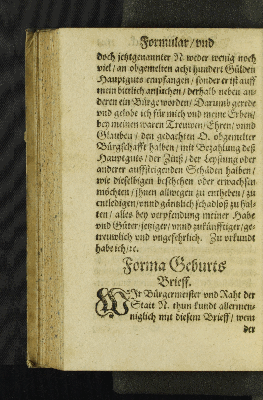 Formular/ vnd
doch jetztgenannter N weder wenig noch
viel/ an obgemelten acht hundert Gülden
Hauptguts empfangen/ sonder er ist auff
mein bittlich ansuchen/ derhalb neben an-
deren ein Bürge worden/ Darumb gerede
vnd gelobe ich für mich vnd meine Erben/
bey meinen waren Treuwen/ Ehren/ vnnd
Glauben/ den gedachten O. obgemelter
Bürgschafft halben/ mit Bezahlung deß
Hauptguts/ der Zinß/ der Leystung oder
anderer aufffsteigenden Schäden halben/
wie dieselbigen beschehen oder erwachsen
möchten/ jhnen allwegen zu entheben/ zu
entledigen/ vnnd gäntzlich schadloß zu hal-
ten/ alles bey verpfendung meiner Habe
vnd Güter/ jetziger/ vnnd zukünfftiger/ ge-
treuwlich vnd vngefehrlich. Zu vrkundt
habe ich/ ꝛc.
Forma Geburts
Brieff.
WIr Bürgermeister vnd Raht der
Statt N. thun kundt allermen-
niglich mit diesem Brieff/ wem
der